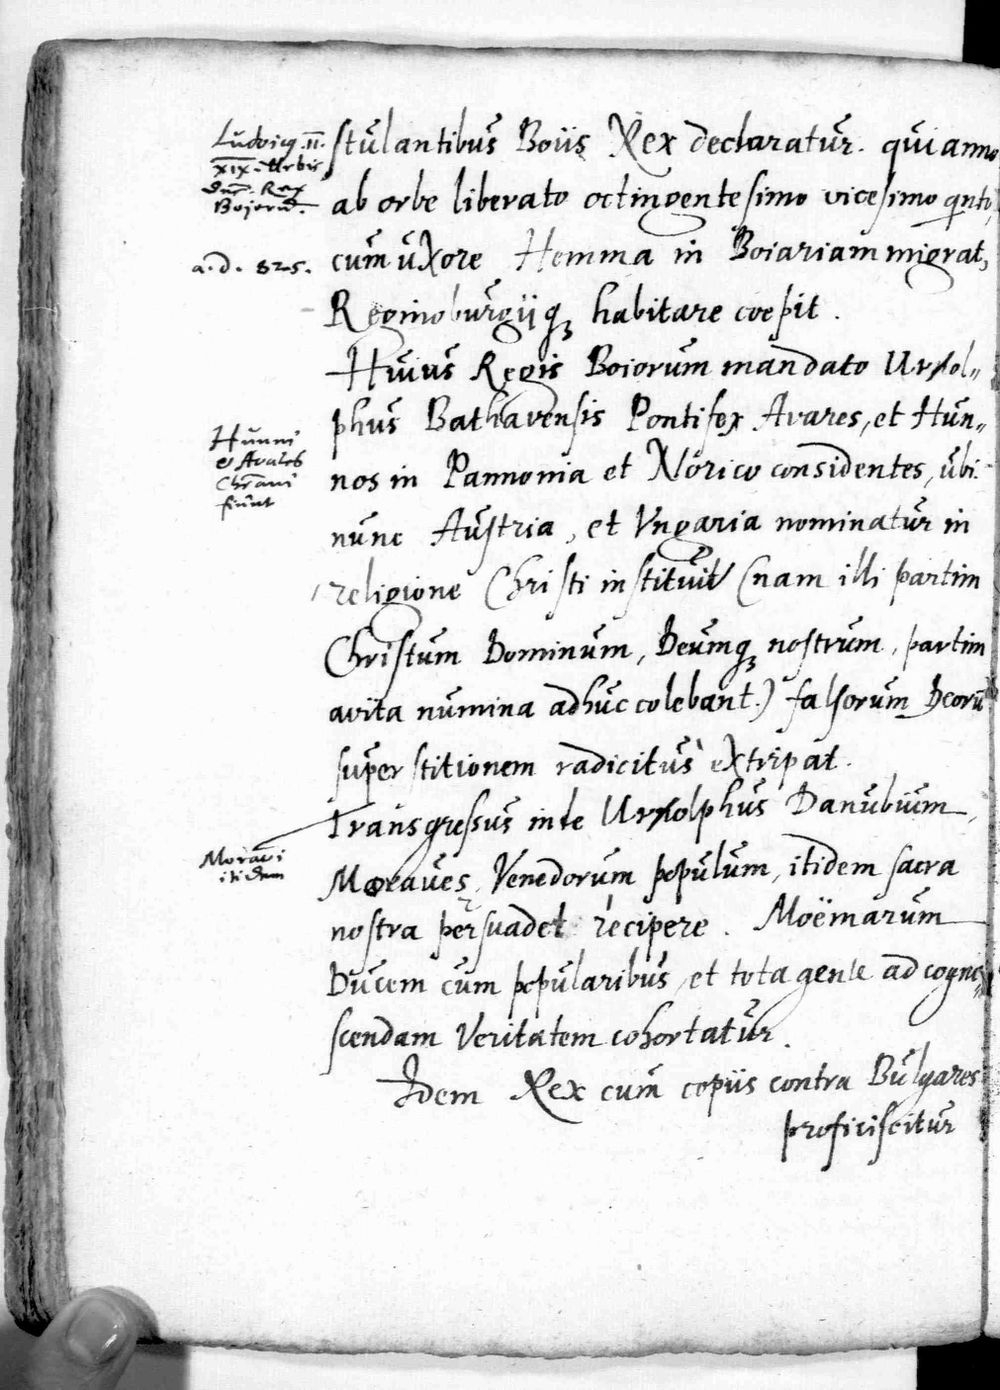 Ludovicq. II.
XIX. Urbis
Rex
Bojorū.
a. d. 825.
Hunni
& Avares
Chr̄ani
fiunt
Moravi
itidem
stulantibus Boiis Rex declaratur. qui anno
ab orbe liberato octingentesimo vicesimo qnto,
cum uxore Hemma in Boiariam migrat,
Reginoburgiiq₃ habitare coepit.
Huius Regis Boiorum mandato Urolol„
phus Bathavensis Pontifex Avares, et Hun„
nos in Pannonia et Norico considentes, ubi
nunc Austria, et Vngaria nominatur in
religione Christi instituit (nam illi partim
Christum Dominum, Deumq₃ nostrum, partim
avita numina adhuc colebant.) falsorum Deorū
superstitionem radicitus extirpat.
Transgressus inde Urololphus Danubium,
Moraves, Venedorum populum, itidem sacra
nostra persuadet recipere. Moëmarum
Ducem cum popularibus, et tota gente ad cogno„
scendam Veritatem cohortatur.
Idem Rex cum copiis contra Bulgares
proficiscitur